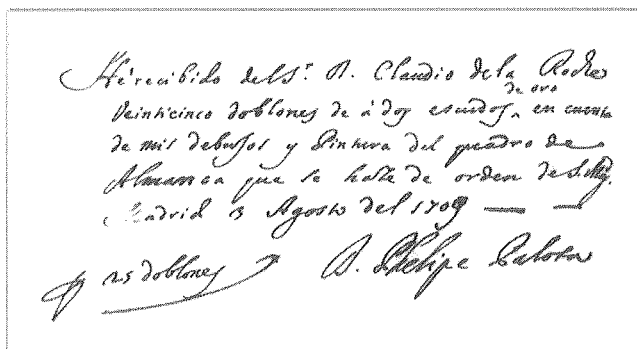 Hé recibido del Sr. D. Claudio de la Roche
Veinticinco doblones de à dos escudos de oro en cuenta
de mis debujos y Pintura del quadro de
Almansa que se hase de orden de S. Mg.
Madrid 3 Agosto del 1709
25 doblones D. Phelipe Palota